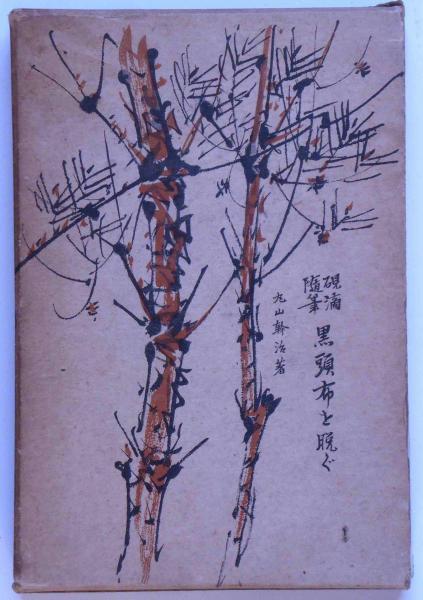 硯滴
随筆
黒頭布を脱ぐ
丸山幹治著